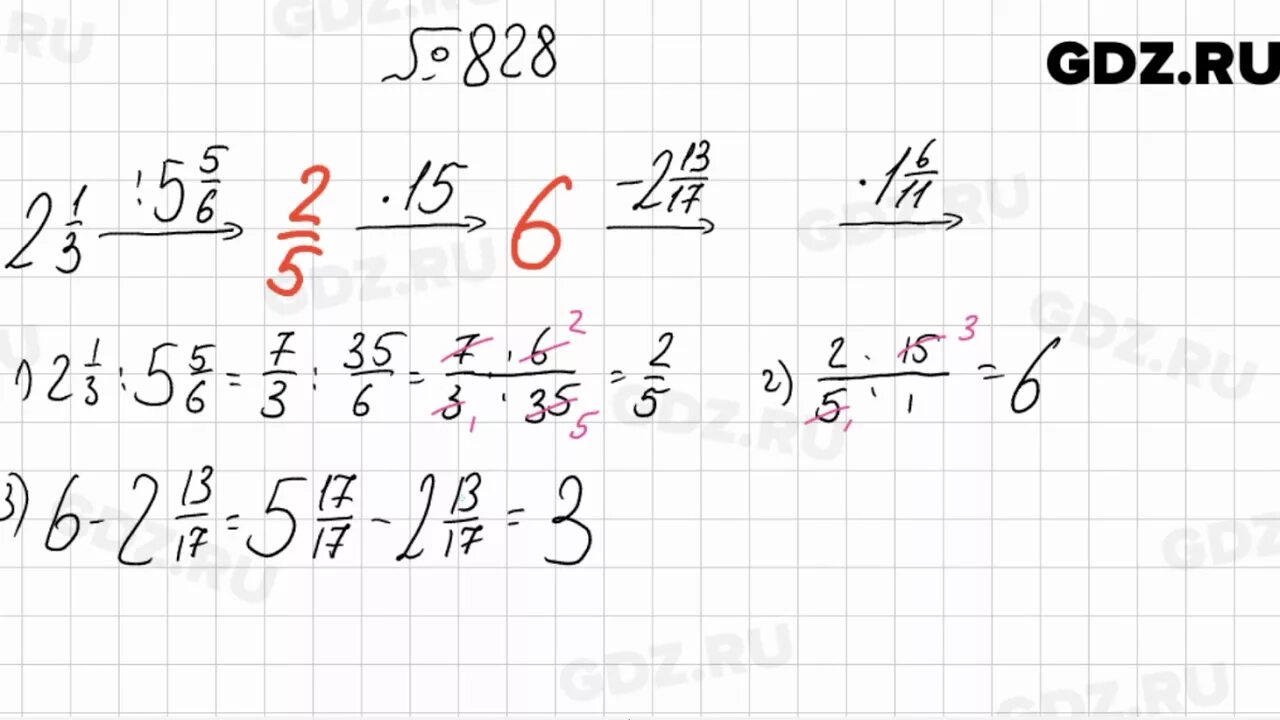 №828
GDZ.RU
2 1/3 :5 5/6 → 2/5 ·15 → 6 -2 13/17 → ·1 6/11 →
1) 2 1/3 : 5 5/6 = 7/3 : 35/6 = 7 · 6 2 / 3 1 · 35 5 = 2/5 2) 2 · 15 3 / 5 1 · 1 = 6
3) 6 - 2 13/17 = 5 17/17 - 2 13/17 = 3